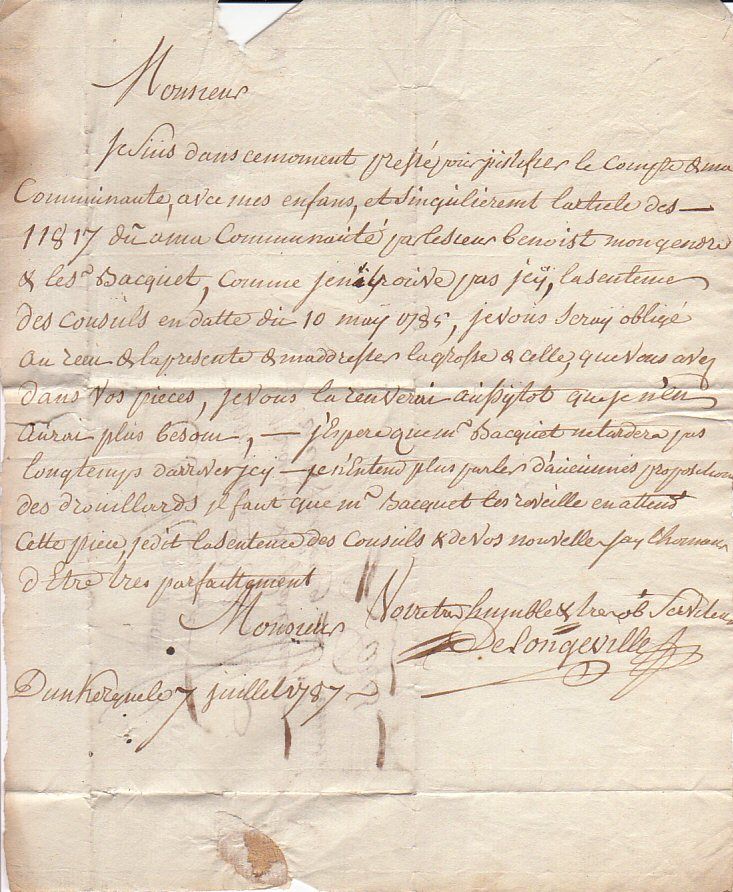 Monsieur
Je suis dans ce moment pressé pour justifier le Compte & ma
Communauté, avec mes enfans, et singulieremt larticle des —
11817 dû a ma Communauté par le sieur benoist mon gendre
& le sr. Bacquet, Comme je n'y trouve pas jcÿ, la sentence
des Consuls en datte du 10 maÿ 1785, je vous seraÿ obligé
au recu & la presente & maddresser la grosse & celle, que vous avez
dans vos pieces, je vous la renverai aussytot que je n'en
aurai plus besoin, — j'Espere que mr. Bacquet ne tardera pas
longtemps d'arriver jcy — je n'Entend plus parler d'aucunnes proposition
des drouillards jl faut que mr. Bacquet les reveille en attendt
Cette piece, je dit la sentence des Consuls & de Vos nouvelles Jay lhonneur
d'Etre tres parfaittement
Monsieur
Votre tres humble & tres ob. Serviteur
DeLongeville
Dunkerque le 7 juillet 1787